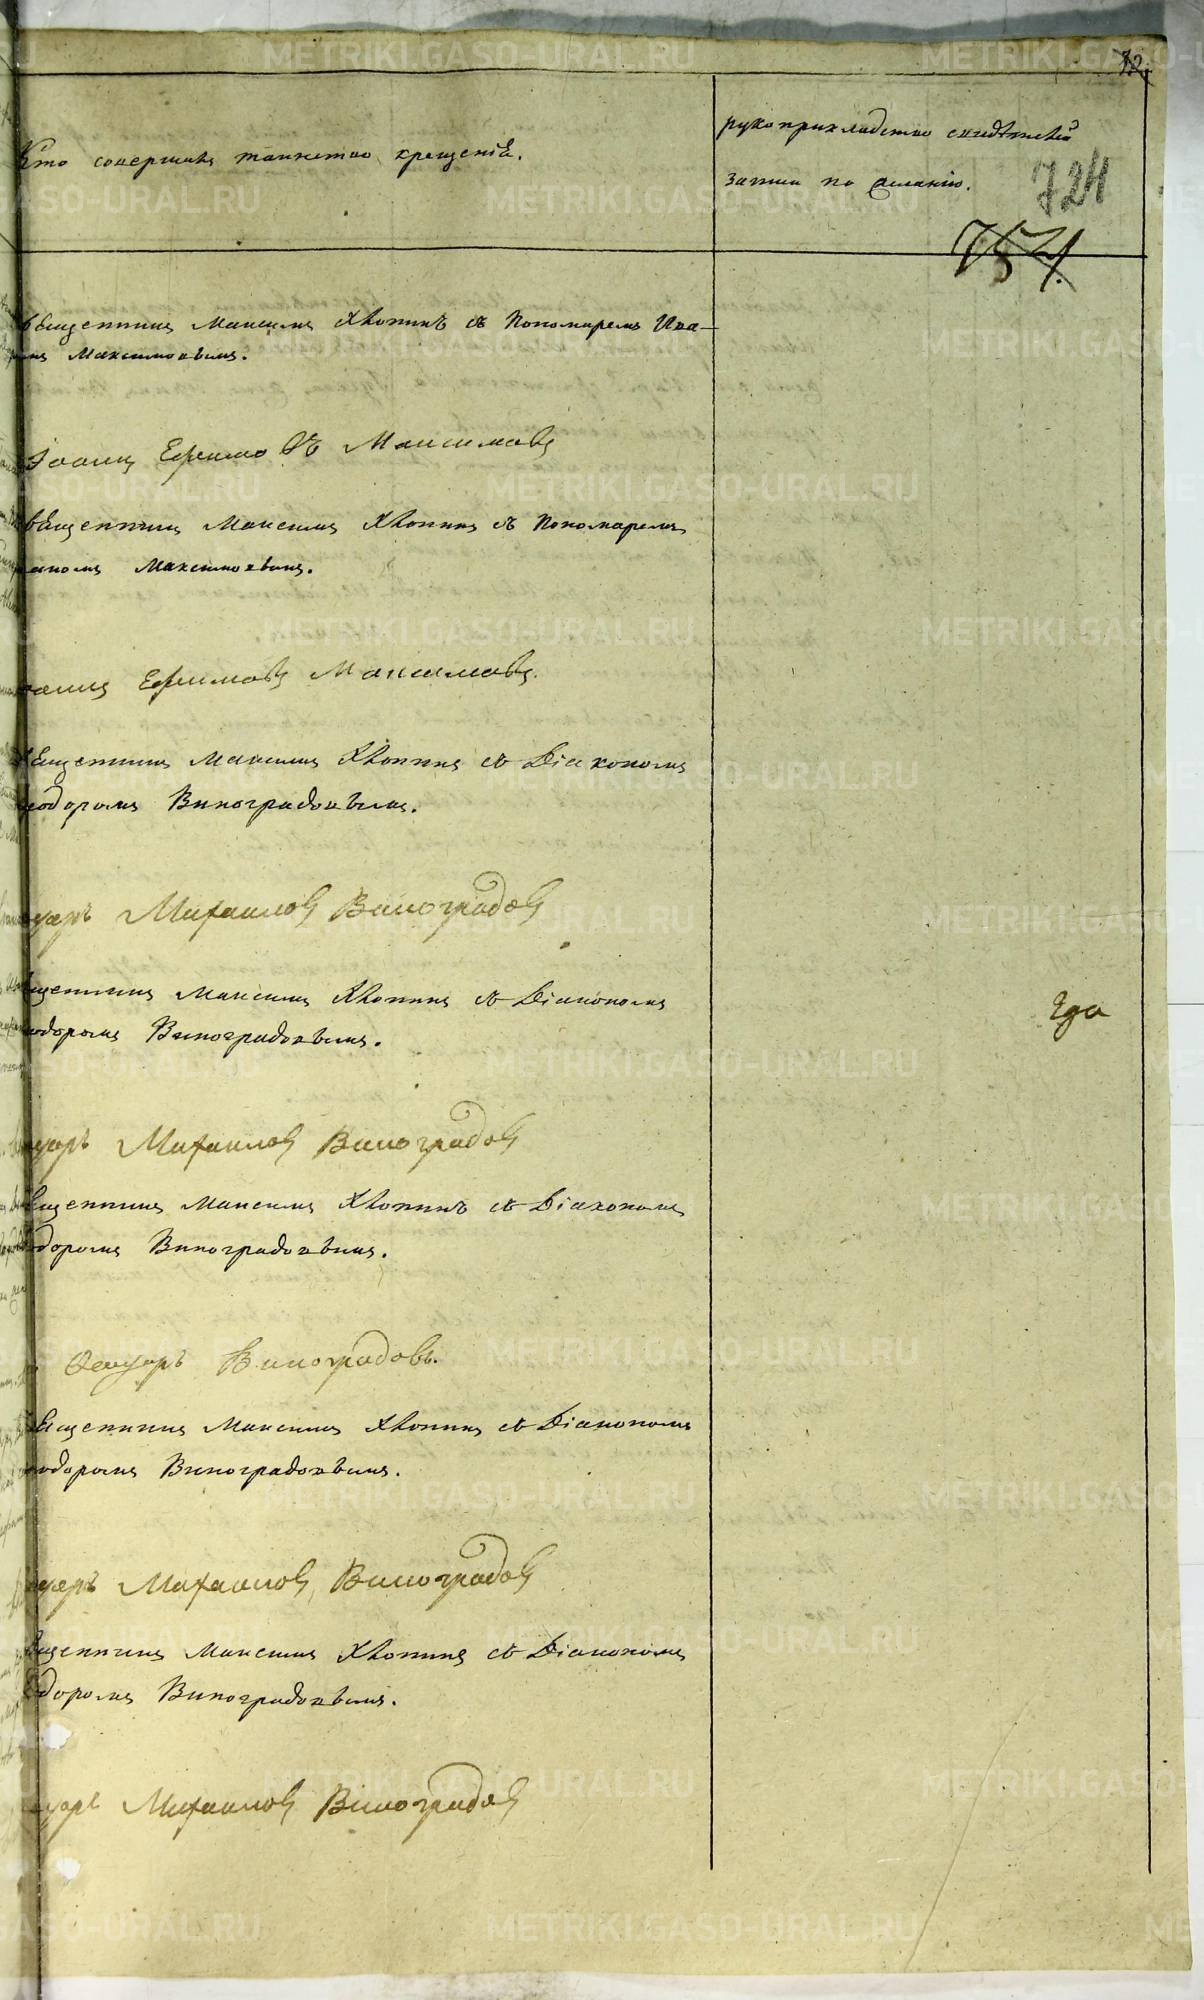 72
Кто совершалъ таинство крещенія.
рукоприкладство свидѣтелей
записи по желанію.
724
754.
Священникъ Максимъ Хлопинъ съ Пономаремъ Ива-
номъ Максимовымъ.
Іоаннъ Ефимовъ Максимовъ
Священникъ Максимъ Хлопинъ съ Пономаремъ
Иваномъ Максимовымъ.
Іоаннъ Ефимовъ Максимовъ.
Священникъ Максимъ Хлопинъ съ Діакономъ
Ѳеодоромъ Виноградовымъ.
Михаиловъ Виноградовъ
Священникъ Максимъ Хлопинъ съ Діакономъ
Ѳеодоромъ Виноградовымъ.
Михаиловъ Виноградовъ
Священникъ Максимъ Хлопинъ съ Діакономъ
Ѳеодоромъ Виноградовымъ.
Виноградовъ.
Священникъ Максимъ Хлопинъ съ Діакономъ
Ѳеодоромъ Виноградовымъ.
Михаиловъ Виноградовъ
Священникъ Максимъ Хлопинъ съ Діакономъ
Ѳеодоромъ Виноградовымъ.
Михаиловъ Виноградовъ